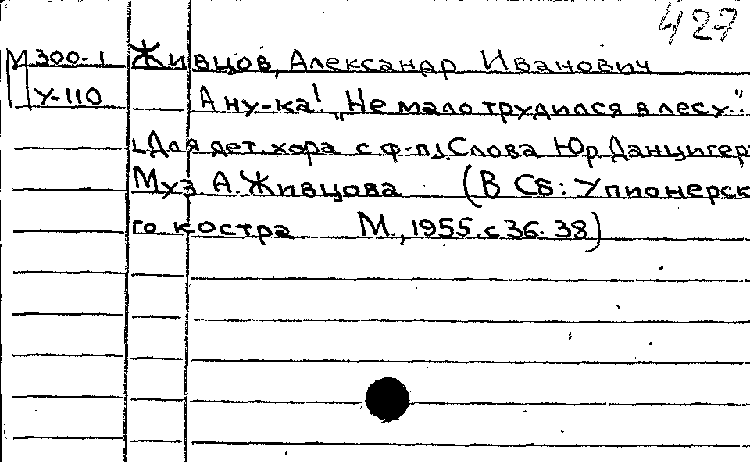 427
М 300-1 Живцов, Александр Иванович
У-110 А ну-ка! „Не мало трудился в лесу".
[Для дет. хора с ф-п]. Слова Юр. Данцигер
Муз. А. Живцова (В Сб: У пионерск
го костра М., 1955. с 36-38)